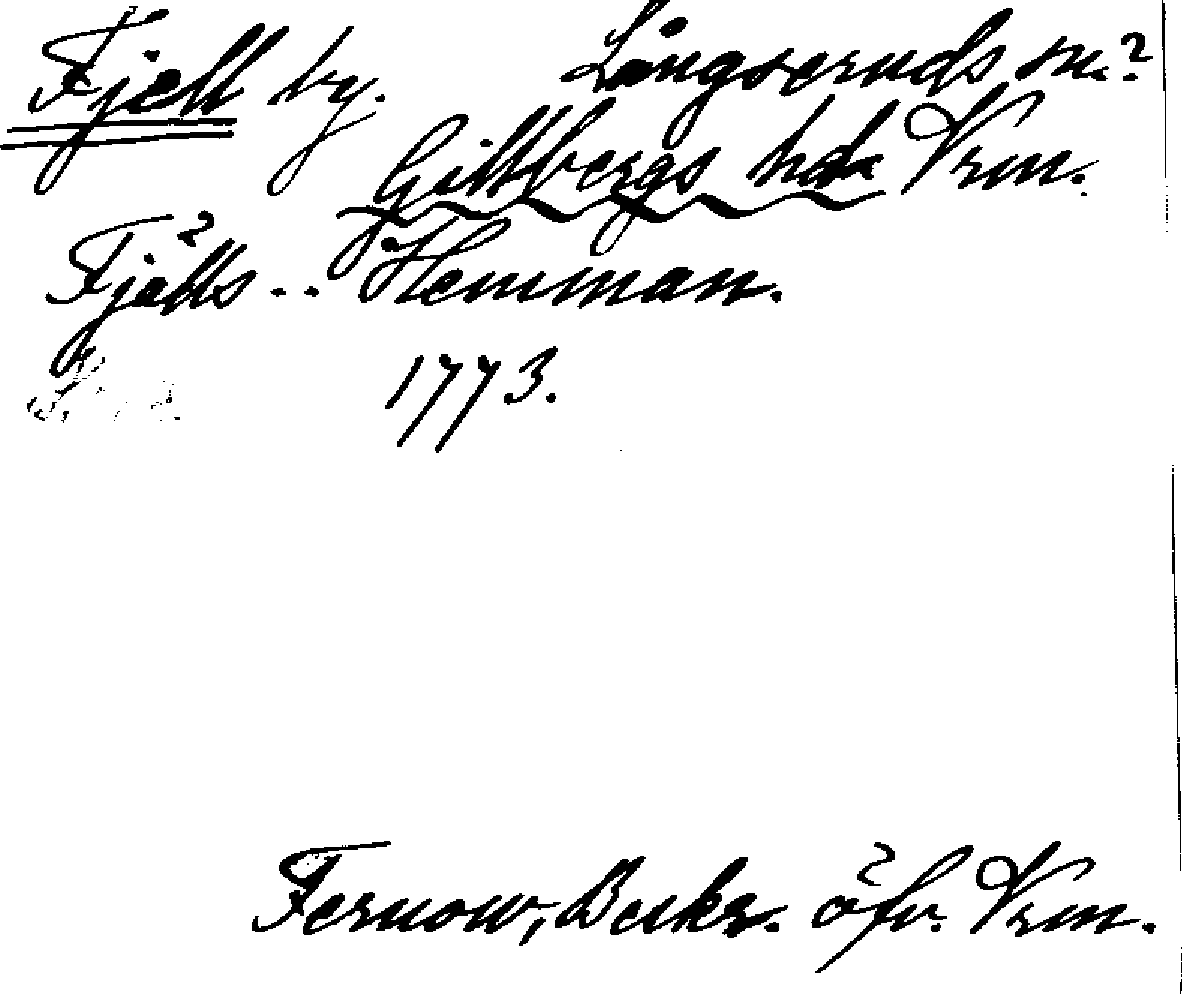 Fjell by. Långseruds sn.?
Gillbergs hd Vrm.
Fjälls -.. Hemman.
1773.
Fernow, Beskr. öfv. Vrm.